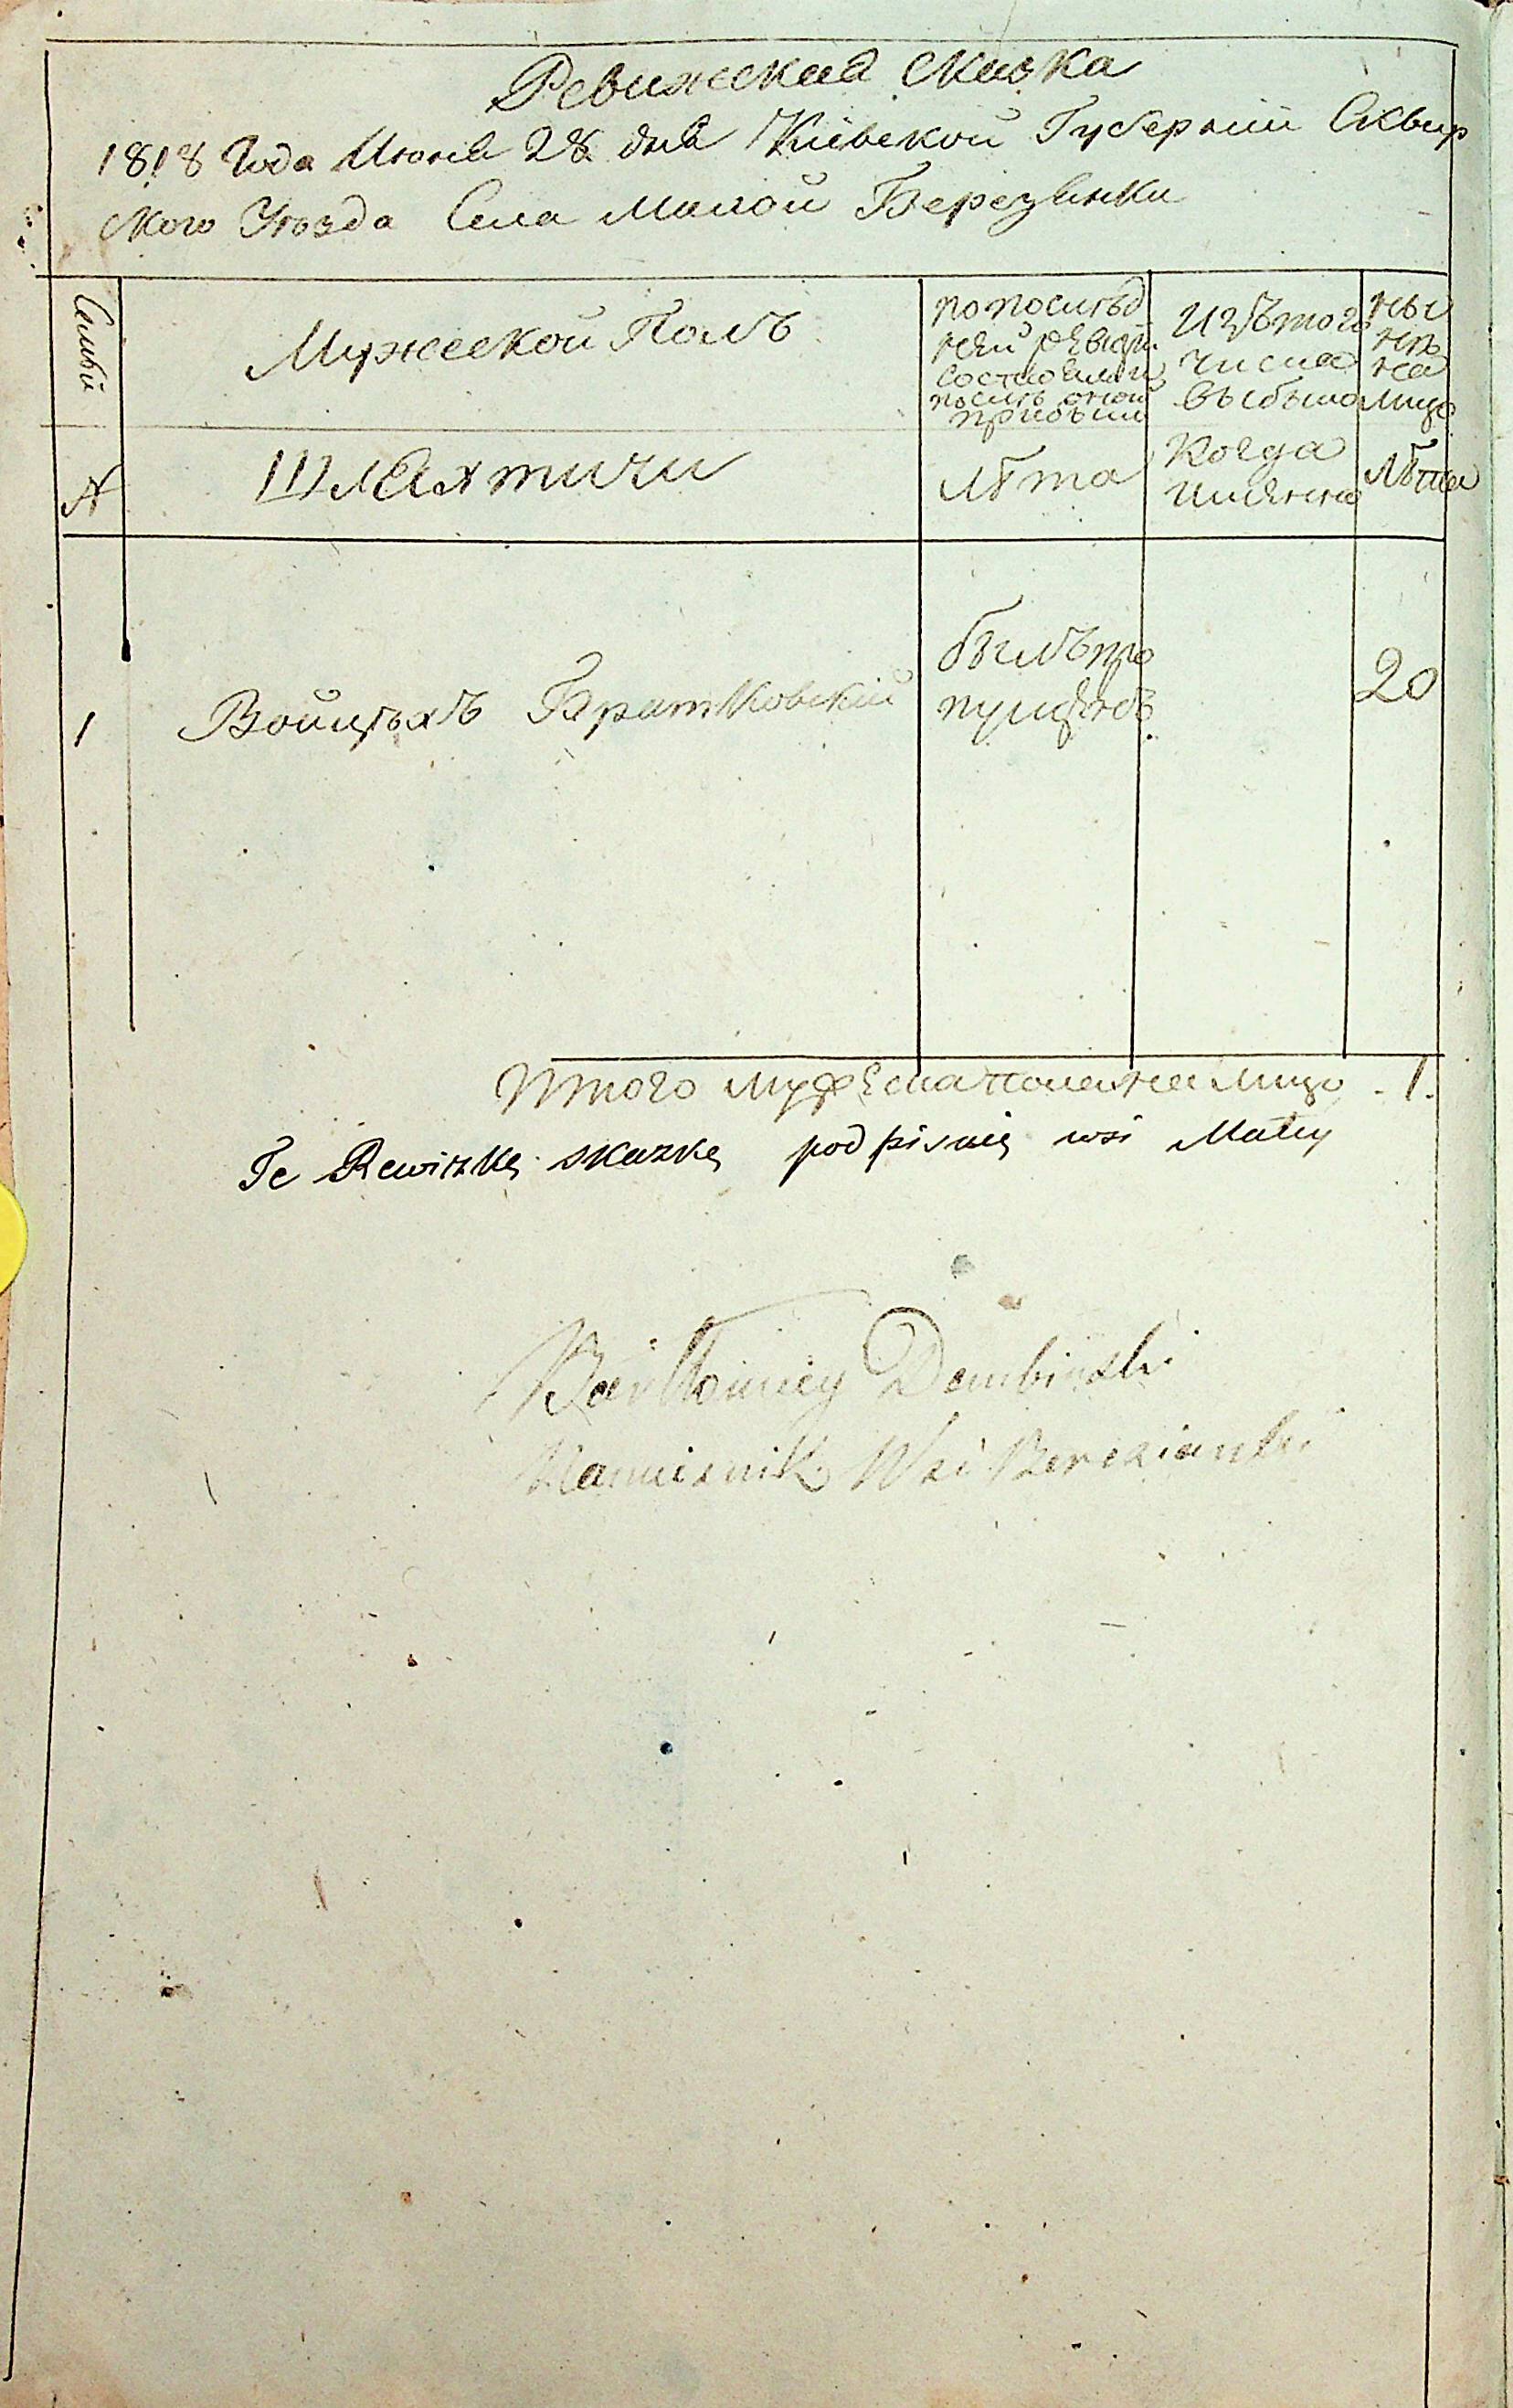 Ревижская Скаска
1818 Года Июня 28 дня Кіевской Губерніи Сквир
ского Уѣзда Села Малой Березянки
Семьи
Мужеской Полъ
по послѣд
ней ревизіи
состояло и
послѣ оной
прибыли
Изъ того
числа
выбыло
ны
нѣ
на
лицо
№
Шляхтичи
лѣта
Когда
имянно
Лѣта
1
Войцѣхъ Братковскій
былъ про
пущенъ
20
Итого мужеска пола на лицо 1.
Te Rewizką skazkę podpisuię wsi Małey
Bartłomiey Dembinski
Namiesnik Wsi Berezianki